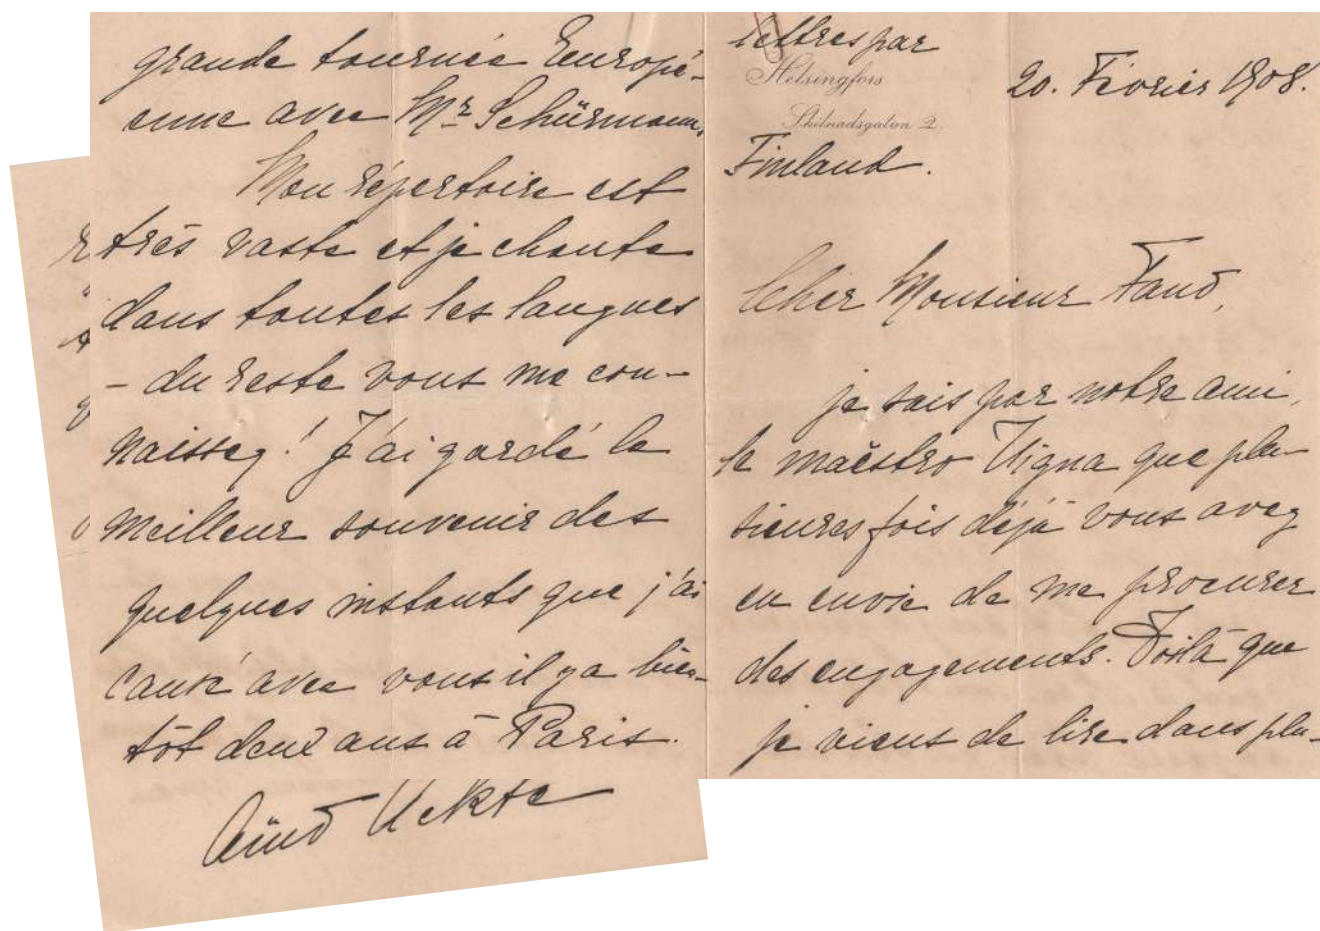 grande tournée Europé-
enne avec Mr Schürmann.
Mon répertoire est
très vaste et je chante
dans toutes les langues
– du reste vous me con-
naissez! J'ai gardé le
meilleur souvenir des
quelques instants que j'ai
causé avec vous il y a bien-
tôt deux ans à Paris.
Aïno Ackte
lettres par
Helsingfors
20. Février 1908.
Skilnadsgatan 2.
Finland.
Cher Monsieur Fano,
je sais par notre ami,
le maëstro Vigna que plu-
sieures fois déjà vous avez
eu envie de me procurer
des engagements. Voilà que
je viens de lire dans plu-